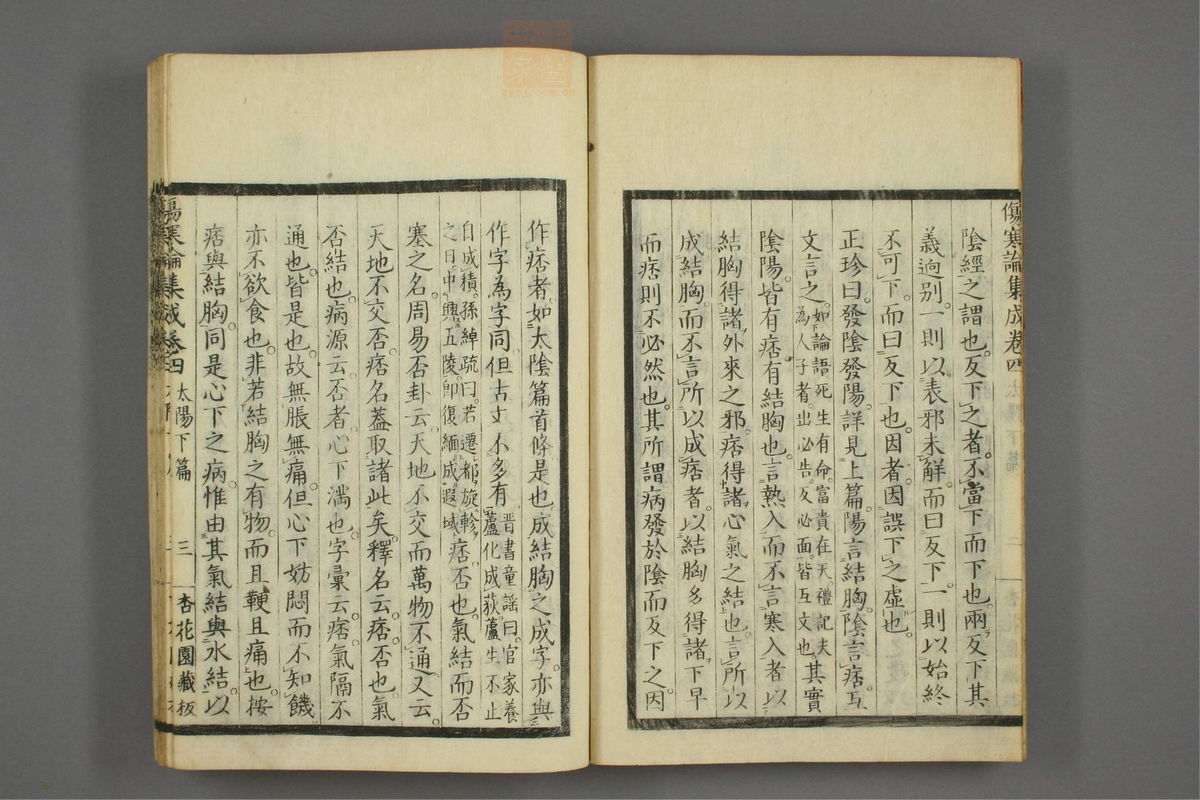 傷寒論集成卷四
陰經之謂也反下之者不當下而下也兩反下其
義逈别一則以表邪未解而曰反下一則以始終
不可下而曰反下也因者因誤下之虛也
正珍曰發陰發陽詳見上篇陽言結胸陰言痞互
文言之如論語死生有命富貴在天禮記夫
為人子者出必告反必面皆互文也其實
陰陽皆有痞有結胸也言熱入而不言寒入者以
結胸得諸外來之邪痞得諸心氣之結也言所以
成結胸而不言所以成痞者以結胸多得諸下早
而痞則不必然也其所謂病發於陰而反下之因
作痞者如太陰篇首條是也成結胸之成字亦與
作字為字同但古文不多有晉書童謠曰官家養
蘆化成荻蘆生不止
自成積孫綽疏曰若遷都旋軫
之日中興五陵卽復緬成遐域痞否也氣結而否
塞之名周易否卦云天地不交而萬物不通又云
天地不交否痞名蓋取諸此矣釋名云痞否也氣
否結也病源云否者心下滿也字彙云痞氣隔不
通也皆是也故無脹無痛但心下妨悶而不知饑
亦不欲食也非若結胸之有物而且鞕且痛也桉
痞與結胸同是心下之病惟由其氣結與水結以
傷寒論集成卷四 太陽下篇 三 杏花園藏板